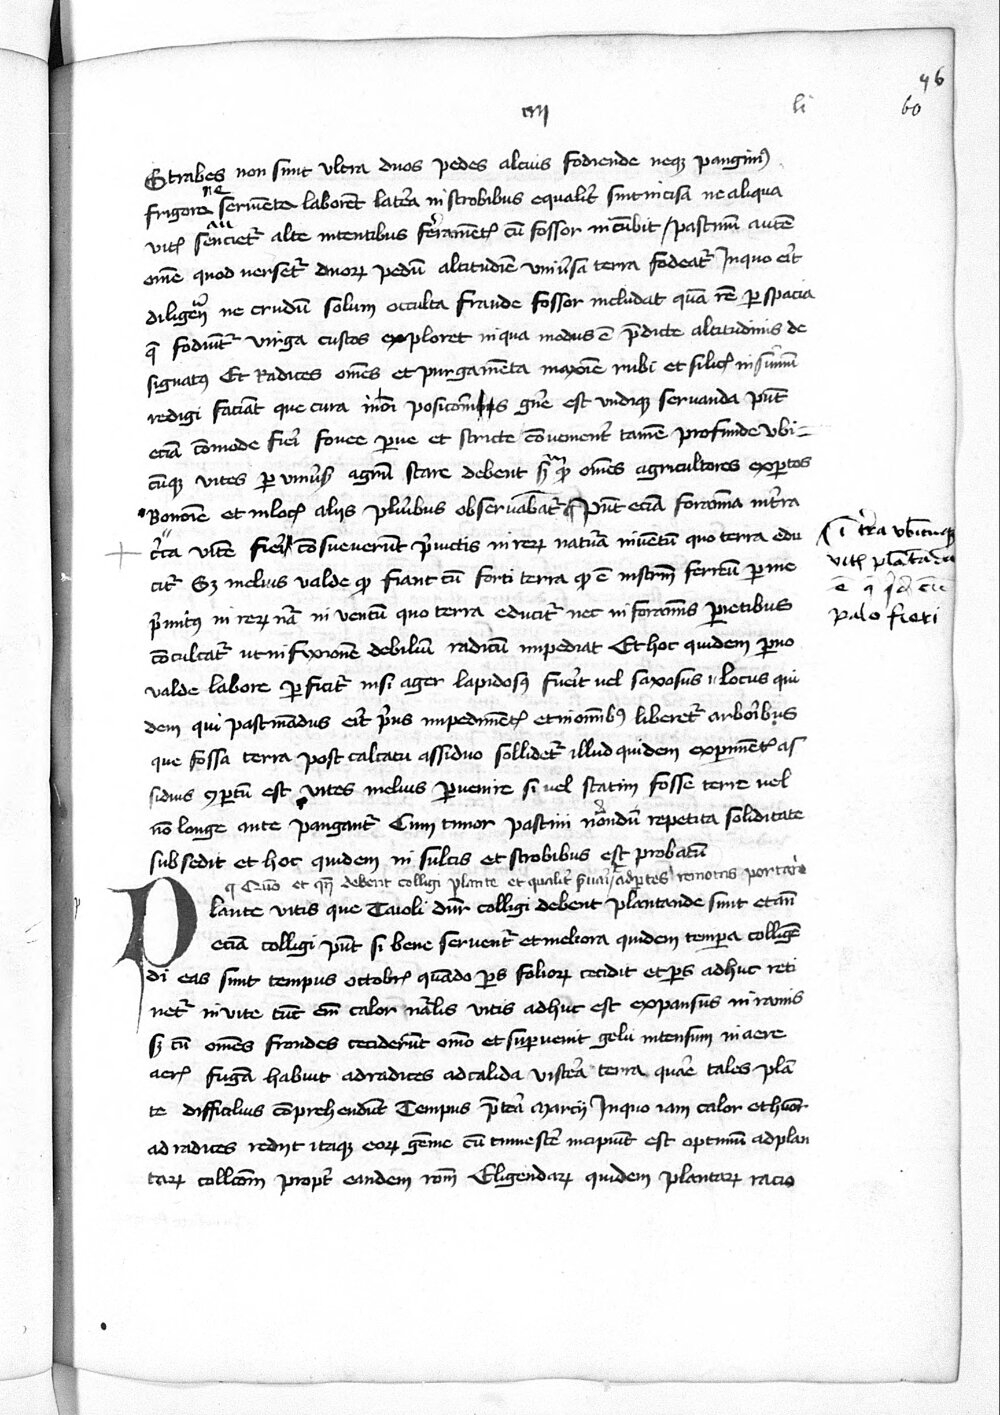 46
60
iiii li
Et trabes non sint ultra duos pedes alcius fodiende neqz pangimus
frigore ne sermenta laborent latera in scrobibus equaliter sint incisa ne aliqua
alte intentibus feramentis cum fossor incumbit pastinum autem
omne quod versetur duorum pedum altitudine universa terra fodeatur In quo erit
diligenter ne crudum solum occulta fraude fossor includat quam rem per spacia
que fodiuntur virga custos exploret in qua modus est predicte altitudinis de
signatus Et Radices omnes et purgamenta maxime rubi et silicis in summum
redigi faciat que cura est undiqz servanda possunt
eciam commode fieri fovee parve et stricte convenienter tamen profunde ubi=
cumqz vites per universum agrum stare debent omnes agricultores expertos
Bononie et in locis aliis pluribus observabatur possunt eciam foramina intra
terra vitem fieri consueverunt in rerum natura inventum quo terra edu
citur Sed melius valde quod fiant cum forti terra quod est instrumentum ferreum per me
in rerum natura in ventum quo terra educitur nec in foraminis parietibus
conculcatur ut infixionem debilium radicum impediat Et hoc quidem parvo
valde labore perficitur nisi ager lapidosus fuerit vel saxosus Locus qui
dem qui pastinandus erit prius impedimentis et in omnibus liberetur arboribus
que fossa terra post calcatu assiduo sollidetur illud quidem experimentis as
siduis compertum est vites melius pervenire si vel statim fosse terre vel
non longe ante pangantur Cum tumor pastini nondum repetita soliditate
subsedit et hoc quidem in sulcis et scrobibus est probatum
Quomodo et quando debent colligi plante et qualiter ad partes remotas portari
Plante vitis que Taioli dicuntur colligi debent plantande sint
eciam colligi possunt si bene serventur et meliora quidem tempora colligen
di eas sunt tempus octobris quando pars foliorum cecidit et pars adhuc reti
netur in vite tunc enim calor naturalis vitis adhuc est expansus in ramis
sed cum omnes frondes ceciderunt omnino et supervenit gelu intensum in aere
aeris fugam habuit ad radices ad calida viscera terra quare tales plan
te difficilius comprehendunt Tempus preterea Marcii In quo iam calor et humor
ad radices rediit itaqz eorum gemme cum tumescere incipiunt est optimum ad plan
tarum collectionem propter eandem rationem Eligendarum quidem plantarum racio
terra ubicumqz
vitis plantanda
est
palo fieri